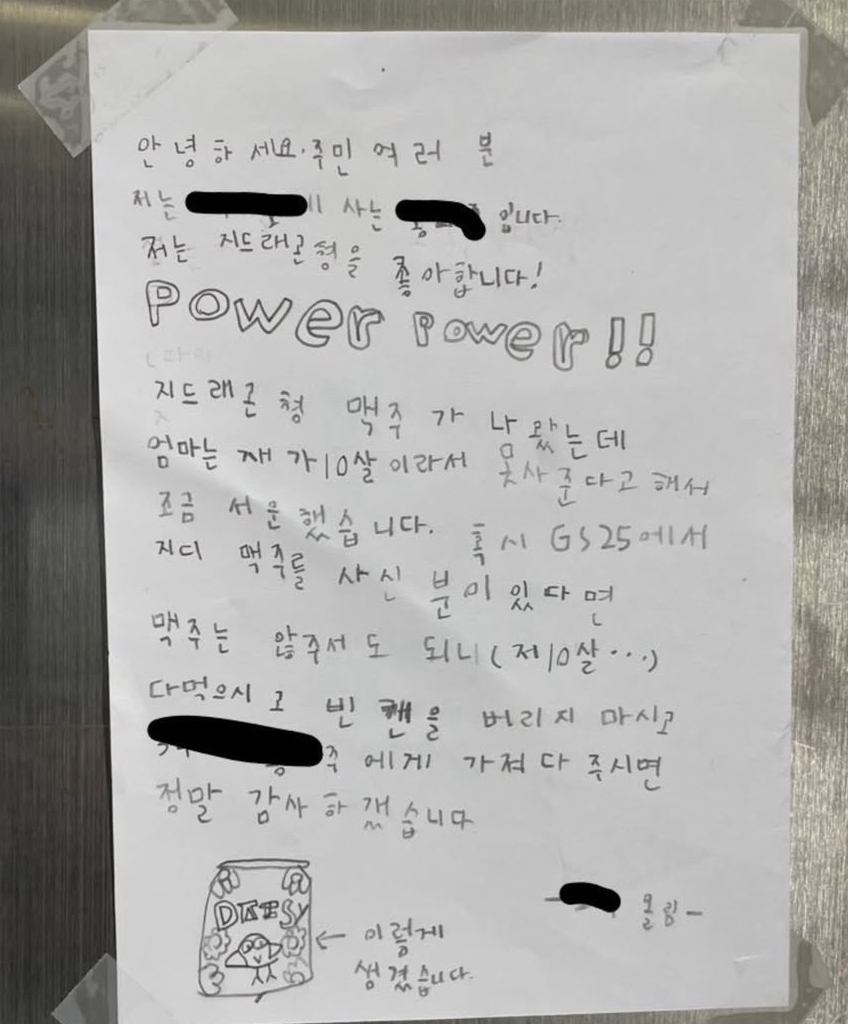 안녕하세요. 주민 여러 분
저는 사는 입니다.
저는 지드래곤형을 좋아합니다!
Power Power!!
지드래곤 형 맥주 가 나왔는데
엄마는 재 가10살이라서 못사 준다고 해서
조금 서운했습니다. 혹시 GS25에서
지디 맥주를 사신 분이 있다면
맥주는 않주셔도 되니(저10살...)
다먹으시고 빈 캔을 버리지 마시고
에게 가져다 주시면
정말 감사하겠습니다
올림-
DAESY
← 이렇게
생겼습니다.